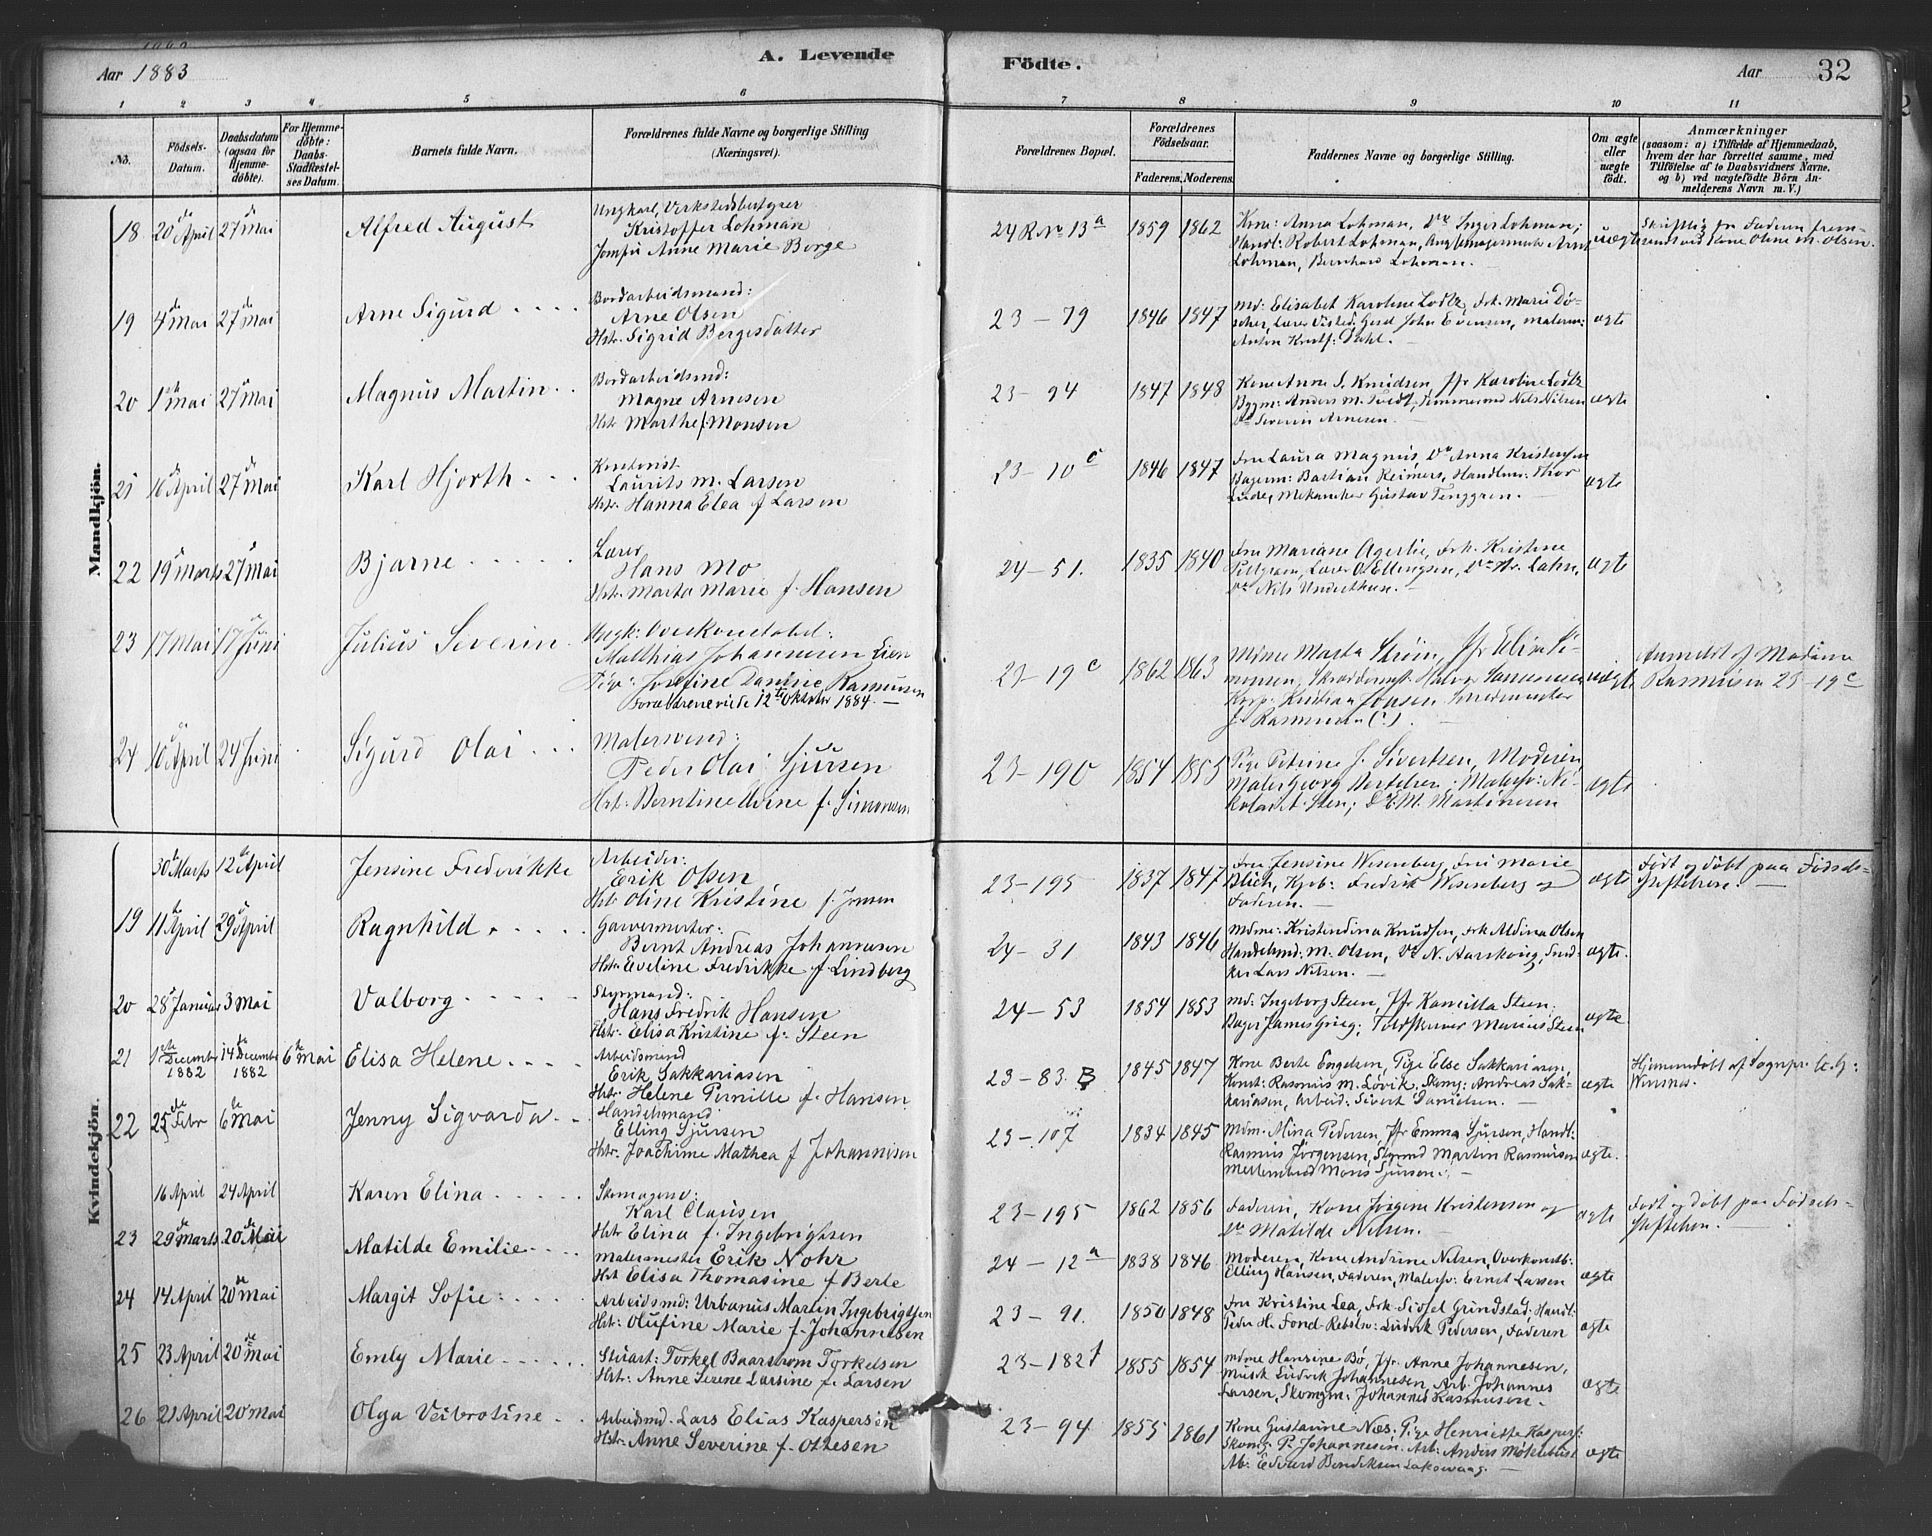 Aar 1883
A. Levende Födte.
Aar 32
1 2 3 4 5 6 7 8 9 10 11
No.
Födsels-Datum.
Daabsdatum (ogsaa för Hjemme-döbte).
For Hjemme-döbte: Daabs-Stadfæstel-ses Datum.
Barnets fulde Navn.
Forældrenes fulde Navne og borgerlige Stilling (Næringsvei).
Forældrenes Bopæl.
Forældrenes Födselsaar.
Faderens. Moderens.
Faddernes Navne og borgerlige Stilling.
Om ægte eller uægte födt.
Anmærkninger
(saasom: a) i Tilfælde af Hjemmedaab, hvem der har forrettet samme, med Tilföielse af to Daabsvidners Navne, og b) ved uægtefödte Börn An-melderens Navn m. V.)
Mandkjön.
18 20de April 27de Mai Alfred August
Ungkarl, Verkstedsbestyrer
Kristoffer Lohman
Jomfru Anne Marie Borge
24 R No 13a 1859 1862
Kone: Anna Lohman, Do Inger Lohman;
Handl: Robert Lohman,
Lohman, Bernhard Lohman. uægte
Skriftlig fra Faderen frem-
Kone Oline M. Olsen.
19 4de Mai 27de Mai Arne Sigurd
Bordarbeidsmand:
Arne Olsen
Hstr. Sigrid Bergesdatter
23 - 79 1846 1847
Md: Elisabet Karoline Lodtz, Frk. Marie Dö-
scher, Lærer Gerd John Evensen, Malerm:
Anton Kristf: Dahl. ægte
20 1ste Mai 27de Mai Magnus Martin
Bordarbeidsmd:
Magne Arnesen
Hstr Marthe f. Monsen
23 - 94 1847 1848
Kone Anne S. Knudsen, Jfr Karoline Lodtz
Bygm: Anders M. Tvedt, Tömmermd Nils Nilsen
Do Severin Arnesen. ægte
21 16de April 27de Mai Karl Hjorth
Kontorist
Laurits M. Larsen
Hstr. Hanna Elea f. Larsen
23 - 10c 1846 1847
Fru Laura Magnus, Do Anna Kristensen
Bagerm: Bastian Reimers, Handlm: Thor
Lude, Mekaniker Gustav Tenggren. ægte
22 19de Marts 27de Mai Bjarne
Lærer
Hans Mo
Hstr. Marta Marie f. Hansen
24 - 51. 1835 1840
Fru Mariane Agerlie, Frk. Kristine
Pettersen, Lærer O. Ellingsen, Do Hr. Lahn,
Do Nils Underthun. ægte
23 17 Mai 17de Juni Julius Severin
Ungk: Overkonstabel:
Matthias Johannesen Lien
Pige: Josefine Danine Rasmussen
Forældrene viede 12te Oktober 1884.
23 - 19c 1862 1863
Mdme Marta Ström, Jfr Elise Si-
monsen, Skræddermst: Halvor
Korp. Kristian Jonsen Smedmester
J. Rasmussen uægte
Anmeldt af Madam
Rasmussen 23 - 19c
24 10de April 24 Juni Sigurd Olai
Malersvend:
Peder Olai Sjursen
Hstr: Berntine f. Simonsen
23 - 190 1854 1855
Pige Petrine J. Sivertsen, Moderen,
Maler Georg Bertelsen, Malersv: Ni-
kolai A. Sten; Do E. M. Martinsen ægte
Kvindekjön.
30te Marts 12te April Jensine Frederikke
Arbeider:
Erik Olsen
Hstr Oline Kristine f. Jonsen
23 - 195 1837 1847
Fru Jensine Wesenberg, Fru Marie
Blich, Kjøb: Fredrik Wesenberg og
Faderen. ægte
Født og døbt paa Födsels-
stiftelsen.
19 11te April 29de April Ragnhild
Garvermester:
Bernt Andreas Johannesen
Hstr Eveline Fredrikke f. Lindberg
24 - 31 1843 1846
Mdme: Kristendina Knudsen, Frk Aldina Olsen
Handelsmd: M. Olsen, Do N. Aarskoug, Sned-
ker Lars Nilsen. ægte.
20 28de Januar 3 Mai Valborg
Styrmand:
Hans Fredrik Hansen
Hstr: Elisa Kristine f. Steen
24 - 53 1854 1853
Md: Ingeborg Steen, Jfr Kamilla Steen.
Bager James Grieg; Toldskriver Marius Steen ægte
21 1ste December 1882 14de December 1882 6te Mai Elisa Helene
Arbeidsmand
Erik Sakkariasen
Hstr. Helene Pernille f. Hansen.
23 - 83. B 1845 1847
Kone Berte Engelsen, Pige Else Sakkariasen,
Konst: Rasmus M. Lövik, Andreas Sak-
kariasen, Arbeid: Sivert Danielsen. ægte
Hjemmedøbt af Sognepr.
Winsnes.
22 25de Febr 6te Mai Jenny Sigvarda
Handelsmand
Elling Sjursen
Hstr. Joachime Mathea f. Johannesen
23 - 107 1834 1845
Mdm. Mina Pedersen, Jfr Emma Sjursen, Handl:
Rasmus Jörgensen, Styrmd Martin Rasmussen
Mons Sjursen. ægte.
16 April 24 April Karen Elina
Skomagersv:
Karl Clausen
Hstr Elina f. Ingebrigtsen
23 - 195 1862 1856
Faderen, Kone Jörgine Kristensen og
Do Matilde Nilsen. ægte
Født og døbt paa Födsels-
stiftelsen.
23 29de Marts 20de Mai Matilde Emilie
Malermester Erik Nohr
Hstr Elisa Thomasine f Berle
24 - 12a 1838 1846
Moderen, Kone Andrine Nilsen, Overkonstb:
Elling Hansen, Faderen, Malersv: Ernst Larsen ægte
24 14 April 20de Mai Margit Sofie
Arbeidsmd: Urbanus Martin Ingebrigtsen
Hstr: Olufine Marie f. Johannesen
23 - 91. 1850 1848
Fru Kristine Lea, Frk. Sissel Grindstad, Handl:
Peder H. Fond. Rebslr: Ludvik Pedersen, Faderen ægte
25 23 April 20de Mai Emly Marie
Stuart: Torkel Baarstrøm Torkelsen
Hstr: Anne Serene Larsine f. Larsen
23 - 182f 1855 1854
Mdme Hansine Bø, Jfr. Anne Johannesen,
Musik Ludvik Johannesen, Arb. Johannes
Larsen, Skomgm: Johannes Rasmussen. ægte
26 21 April 20 Mai Olga Veibrotine
Arbeidsmd. Lars Elias Kaspersen
Hstr: Anne Severine f. Ottesen
23 - 94 1855 1861
Kone Gustavine Næs, Pige Henriette Kaspers:
Skomg: P. Johannesen, Arb: Anders Møklebust
Ab: Edvard Bendiksen ægte